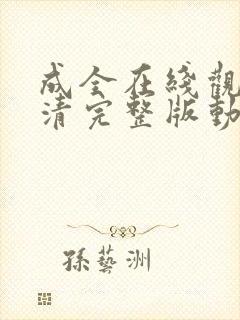 成全在綫觀
清完整版動
孫藝洲